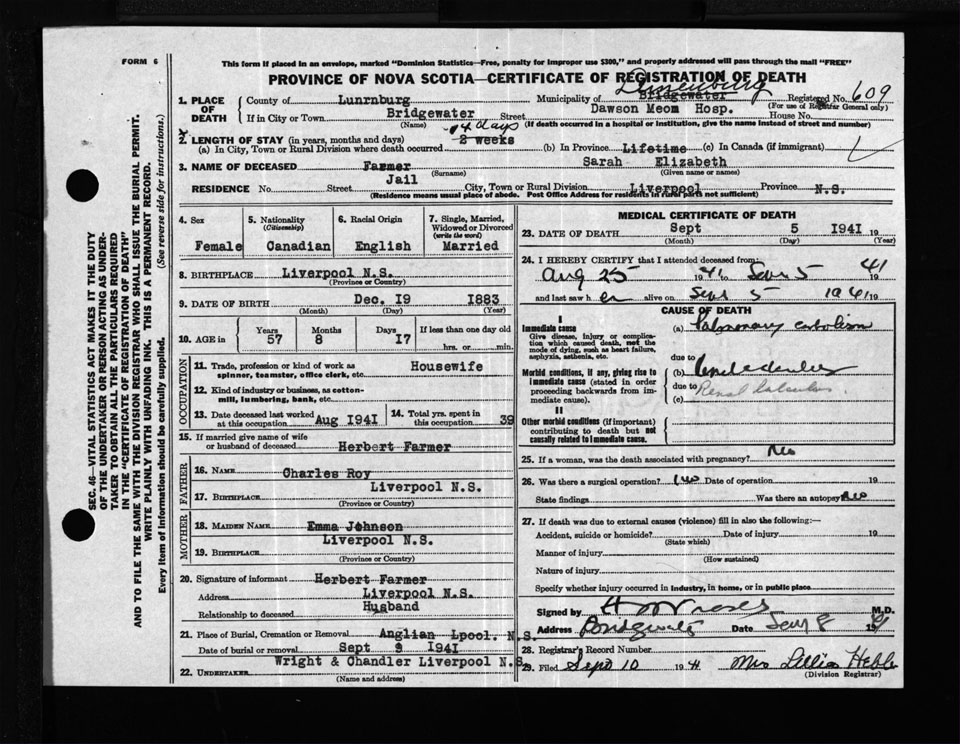 FORM 6
This form if placed in an envelope, marked "Dominion Statistics—Free, penalty for improper use $300," and properly addressed will pass through the mail "FREE"
PROVINCE OF NOVA SCOTIA—CERTIFICATE OF REGISTRATION OF DEATH
Lunenburg
1. PLACE OF DEATH
County of Lunrnburg Municipality of Bridgewater Registered No. 609
Dawson Meom Hosp. (For use of Registrar General only)
If in City or Town Bridgewater Street House No.
(Name) (If death occurred in a hospital or institution, give the name instead of street and number)
14 days
2. LENGTH OF STAY (in years, months and days) 2 weeks
(a) In City, Town or Rural Division where death occurred (b) In Province Lifetime (c) In Canada (if immigrant)
3. NAME OF DECEASED Farmer Sarah Elizabeth
(Surname) (Given name or names)
RESIDENCE No. Jail Street City, Town or Rural Division Liverpool Province N.S.
(Residence means usual place of abode. Post Office Address for residents in rural parts not sufficient)
SEC. 46—VITAL STATISTICS ACT MAKES IT THE DUTY
OF THE UNDERTAKER OR PERSON ACTING AS UNDER-
TAKER TO OBTAIN ALL THE PARTICULARS REQUIRED
IN THE "CERTIFICATE OF REGISTRATION OF DEATH"
AND TO FILE THE SAME WITH THE DIVISION REGISTRAR WHO SHALL ISSUE THE BURIAL PERMIT.
WRITE PLAINLY WITH UNFADING INK. THIS IS A PERMANENT RECORD.
Every item of Information should be carefully supplied. (See reverse side for instructions.)
4. Sex
Female
5. Nationality
(Citizenship)
Canadian
6. Racial Origin
English
7. Single, Married,
Widowed or Divorced
(write the word)
Married
8. BIRTHPLACE Liverpool N.S.
(Province or Country)
9. DATE OF BIRTH Dec. 19 1883
(Month) (Day) (Year)
10. AGE in
Years Months Days If less than one day old
57 8 17 hrs. or min.
OCCUPATION
11. Trade, profession or kind of work as Housewife
spinner, teamster, office clerk, etc.
12. Kind of industry or business, as cotton-
mill, lumbering, bank, etc.
13. Date deceased last worked
at this occupation Aug 1941
14. Total yrs. spent in
this occupation 39
15. If married give name of wife
or husband of deceased Herbert Farmer
FATHER
16. NAME Charles Roy
17. BIRTHPLACE Liverpool N.S.
(Province or Country)
MOTHER
18. MAIDEN NAME Emma Johnson
19. BIRTHPLACE Liverpool N.S.
(Province or Country)
20. Signature of informant Herbert Farmer
Address Liverpool N.S.
Relationship to deceased Husband
21. Place of Burial, Cremation or Removal Anglian Lpool. N.S.
Date of burial or removal Sept 1941
22. UNDERTAKER Wright & Chandler Liverpool N.S.
(Name and address)
MEDICAL CERTIFICATE OF DEATH
23. DATE OF DEATH Sept 5 1941 19
(Month) (Day) (Year)
24. I HEREBY CERTIFY that I attended deceased from:
Aug 25 1941 to Sept 5 1941
and last saw her alive on Sept 5 1941 19
CAUSE OF DEATH
I
Immediate cause
Give disease, injury or complica-
tion which caused death, not the
mode of dying, such as heart failure,
asphyxia, asthenia, etc.
(a) Pulmonary embolism
due to
Morbid conditions, if any, giving rise to
immediate cause (stated in order
proceeding backwards from im-
mediate cause).
(b)
due to
(c) Renal Calculus
II
Other morbid conditions (if important)
contributing to death but not
causally related to immediate cause.
25. If a woman, was the death associated with pregnancy? No
26. Was there a surgical operation? Date of operation 19
State findings Was there an autopsy No
27. If death was due to external causes (violence) fill in also the following:—
Accident, suicide or homicide? Date of injury 19
(State which)
Manner of injury
(How sustained)
Nature of injury
Specify whether injury occurred in industry, in home, or in public place
Signed by M.D.
Address Bridgewater Date Sept 8 1941
28. Registrar's Record Number
29. Filed Sept 10 1941 Mrs Lillian Hebb
(Division Registrar)